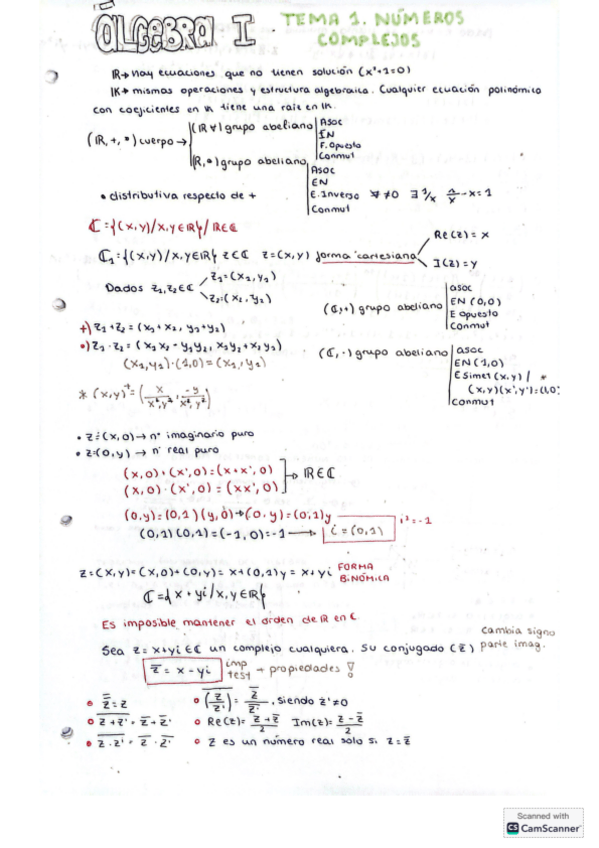 ÁLGEBRA I TEMA 1. NÚMEROS COMPLEJOS
IR → Hay ecuaciones que no tienen solución (x²+1=0)
IK → mismas operaciones y estructura algebraica. Cualquier ecuación polinómica
con coeficientes en IK tiene una raíz en IK.
(IR, +, •) cuerpo →
(IR ∀) grupo abeliano
Asoc
IN
F. Opuesto
Conmut
(IR, •) grupo abeliano
Asoc
EN
E. Inverso ∀ ≠0 ∃ 1/x 1/x · x = 1
Conmut
• distributiva respecto de +
ℂ = {(x,y)/x,y∈IR} / IR∈ℂ
ℂ₁ = {(x,y)/x,y∈IR} z∈ℂ z=(x,y) forma cartesiana
Re(z) = x
I(z) = y
Dados z₁,z₂∈ℂ
z₁=(x₁,y₁)
z₂=(x₂,y₂)
(ℂ,+) grupo abeliano
asoc
EN (0,0)
E Opuesto
Conmut
+) z₁+z₂ = (x₁+x₂, y₁+y₂)
•) z₁·z₂ = (x₁x₂ - y₁y₂, x₁y₂+x₂y₁)
(x₁,y₁)·(1,0) = (x₁,y₂)
(ℂ,·) grupo abeliano
asoc
EN (1,0)
E Simet (x,y) / *
(x,y)(x',y')=(1,0)
Conmut
* (x,y)⁻¹ = (x/x²,y², -y/x²,y²)
• z=(x,0) → nº imaginario puro
• z=(0,y) → nº real puro
(x,0)+(x',0)=(x+x',0)
(x,0)·(x',0)=(xx',0)
→ IR∈ℂ
(0,y)=(0,1)(y,0)→(0,y)=(0,1)y
i²=-1
(0,1)(0,1)=(-1,0)=-1 → i=(0,1)
z=(x,y)=(x,0)+(0,y)=x+(0,1)y=x+yi FORMA BINÓMICA
ℂ={x+yi/x,y∈IR}
Es imposible mantener el orden de IR en ℂ
Sea z=x+yi∈ℂ un complejo cualquiera. Su conjugado (z̅)
Cambia signo
parte imag.
z̅ = x-yi
imp
test → propiedades!
• z̿=z
• \overline{(z/z')} = z̅/z̅', siendo z'≠0
• \overline{z+z'} = z̅+z̅'
• Re(z)= (z+z̅)/2 Im(z)= (z-z̅)/2
• \overline{z·z'} = z̅·z̅'
• z es un número real solo si z=z̅
Scanned with
CS CamScanner